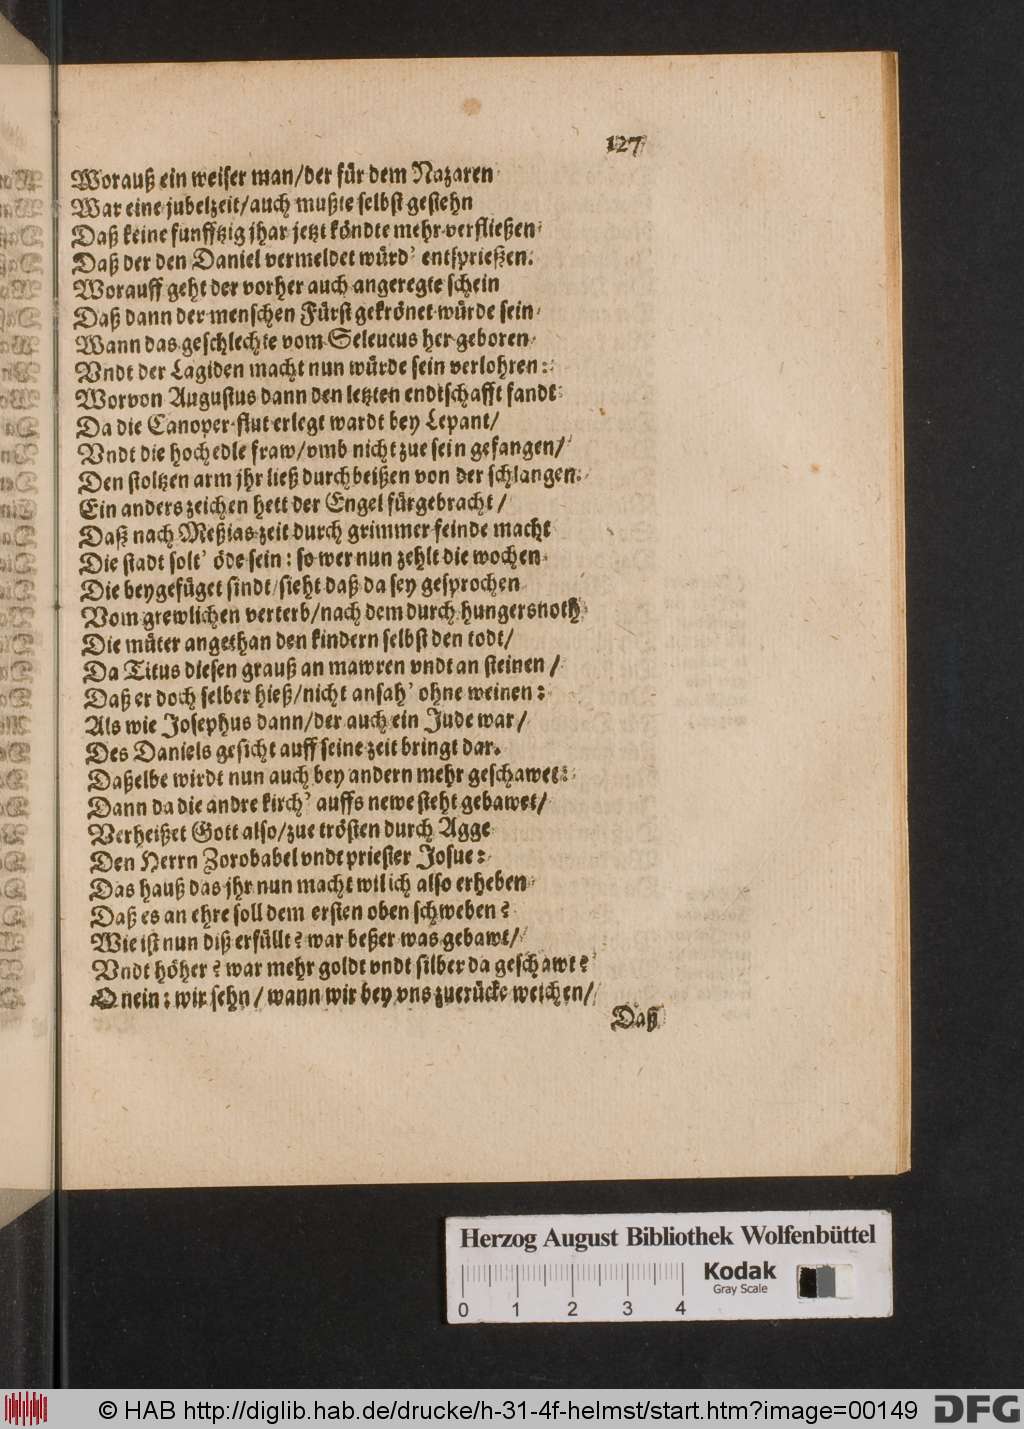 127
Worauß ein weiser man/der für dem Nazaren
War eine jubelzeit/auch mußte selbst gestehn
Daß keine funfftzig jhar jetzt köndte mehr verfließen
Daß der den Daniel vermeldet würd' entsprießen.
Worauff geht der vorher auch angeregte schein
Daß dann der menschen Fürst gekrönet würde sein
Wann das geschlechte vom Seleucus her geboren
Vndt der Lagiden macht nun würde sein verlohren:
Worvon Augustus dann den letzten endtschafft fandt
Da die Canoper flut erlegt wardt bey Lepant/
Vndt die hochedle fraw/vmb nicht zue sein gefangen/
Den stoltzen arm jhr ließ durchbeißen von der schlangen.
Ein anders zeichen hett der Engel fürgebracht/
Daß nach Meßias zeit durch grimmer feinde macht
Die stadt solt' öde sein: so wer nun zehlt die wochen
Die beygefüget sindt/sieht daß da sey gesprochen
Vom grewlichen verterb/nach dem durch hungersnoth
Die müter angethan den kindern selbst den todt/
Da Titus diesen grauß an mawren vndt an steinen/
Daß er doch selber hieß/nicht ansah' ohne weinen:
Als wie Josephus dann/der auch ein Jude war/
Des Daniels gesicht auff seine zeit bringt dar.
Daßelbe wirdt nun auch bey andern mehr geschawet:
Dann da die andre kirch' auffs newe steht gebawet/
Verheißet Gott also/zue trösten durch Agge
Den Herrn Zorobabel vndt priester Josue:
Das hauß das jhr nun macht wil ich also erheben
Daß es an ehre soll dem ersten oben schweben?
Wie ist nun diß erfüllt? war beßer was gebawt/
Vndt höher? war mehr goldt vndt silber da geschawt?
O nein: wir sehn/wann wir bey vns zuerücke weichen/
Daß
Herzog August Bibliothek Wolfenbüttel
Kodak
Gray Scale
0 1 2 3 4
© HAB http://diglib.hab.de/drucke/h-31-4f-helmst/start.htm?image=00149
DFG